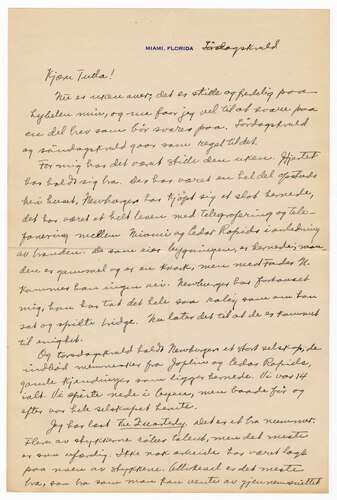 MIAMI, FLORIDA
Lördagskveld
Kjære Tulla!
Nu er uken over; det er stille og fredelig paa
hybelen min, og nu faar jeg vel til at svare paa
en del brev som bör svares paa. Lördagskveld
og söndagskveld gaar som regel til det.
For mig har det været stille den uken. Hjertet
har holdt sig bra. Der har været en hel del opstuss
her i huset, Newberger har kjöpt sig et slot hernede,
det har været et helt leven med telegrafering og tele-
fonering mellem Miami og Cedar Rapids i anledning
av branden. De som eier bygningen, er hernede, man
den er gammel og en knark, men med
kommer han ingen vei. Newberger har forbauset
mig, han har tat det hele saa rolig som om han
sat og spilte bridge. Nu later det til at de er kommet
til enighet.
Og torsdagskveld holdt Newberger et stort selskap, de
indbød mennesker fra Joplin og Cedar Rapids,
gamle kjendinger som ligger hernede. Vi var 14
ialt. Vi spiste nede i byen, men baade för og
efter var hele selskapet hjemme.
Jeg har læst The Quarterly. Det er et bra nummer.
Flere av stykkerne röber talent, men det meste
er saa ufærdig. Ikke nok arbeide har været lagt
paa noen av stykkerne. Allikevel er det meste
bra, saa bra som man kan vente av gjennemsnittet